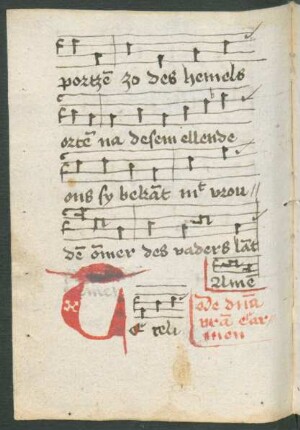 portzē zo des hemels
ortē na desem ellende
ons sy bekāt mt vrou
dē ōmer des vaders lāt
Amē
De dn̄a
nr̄a Car
men
reli